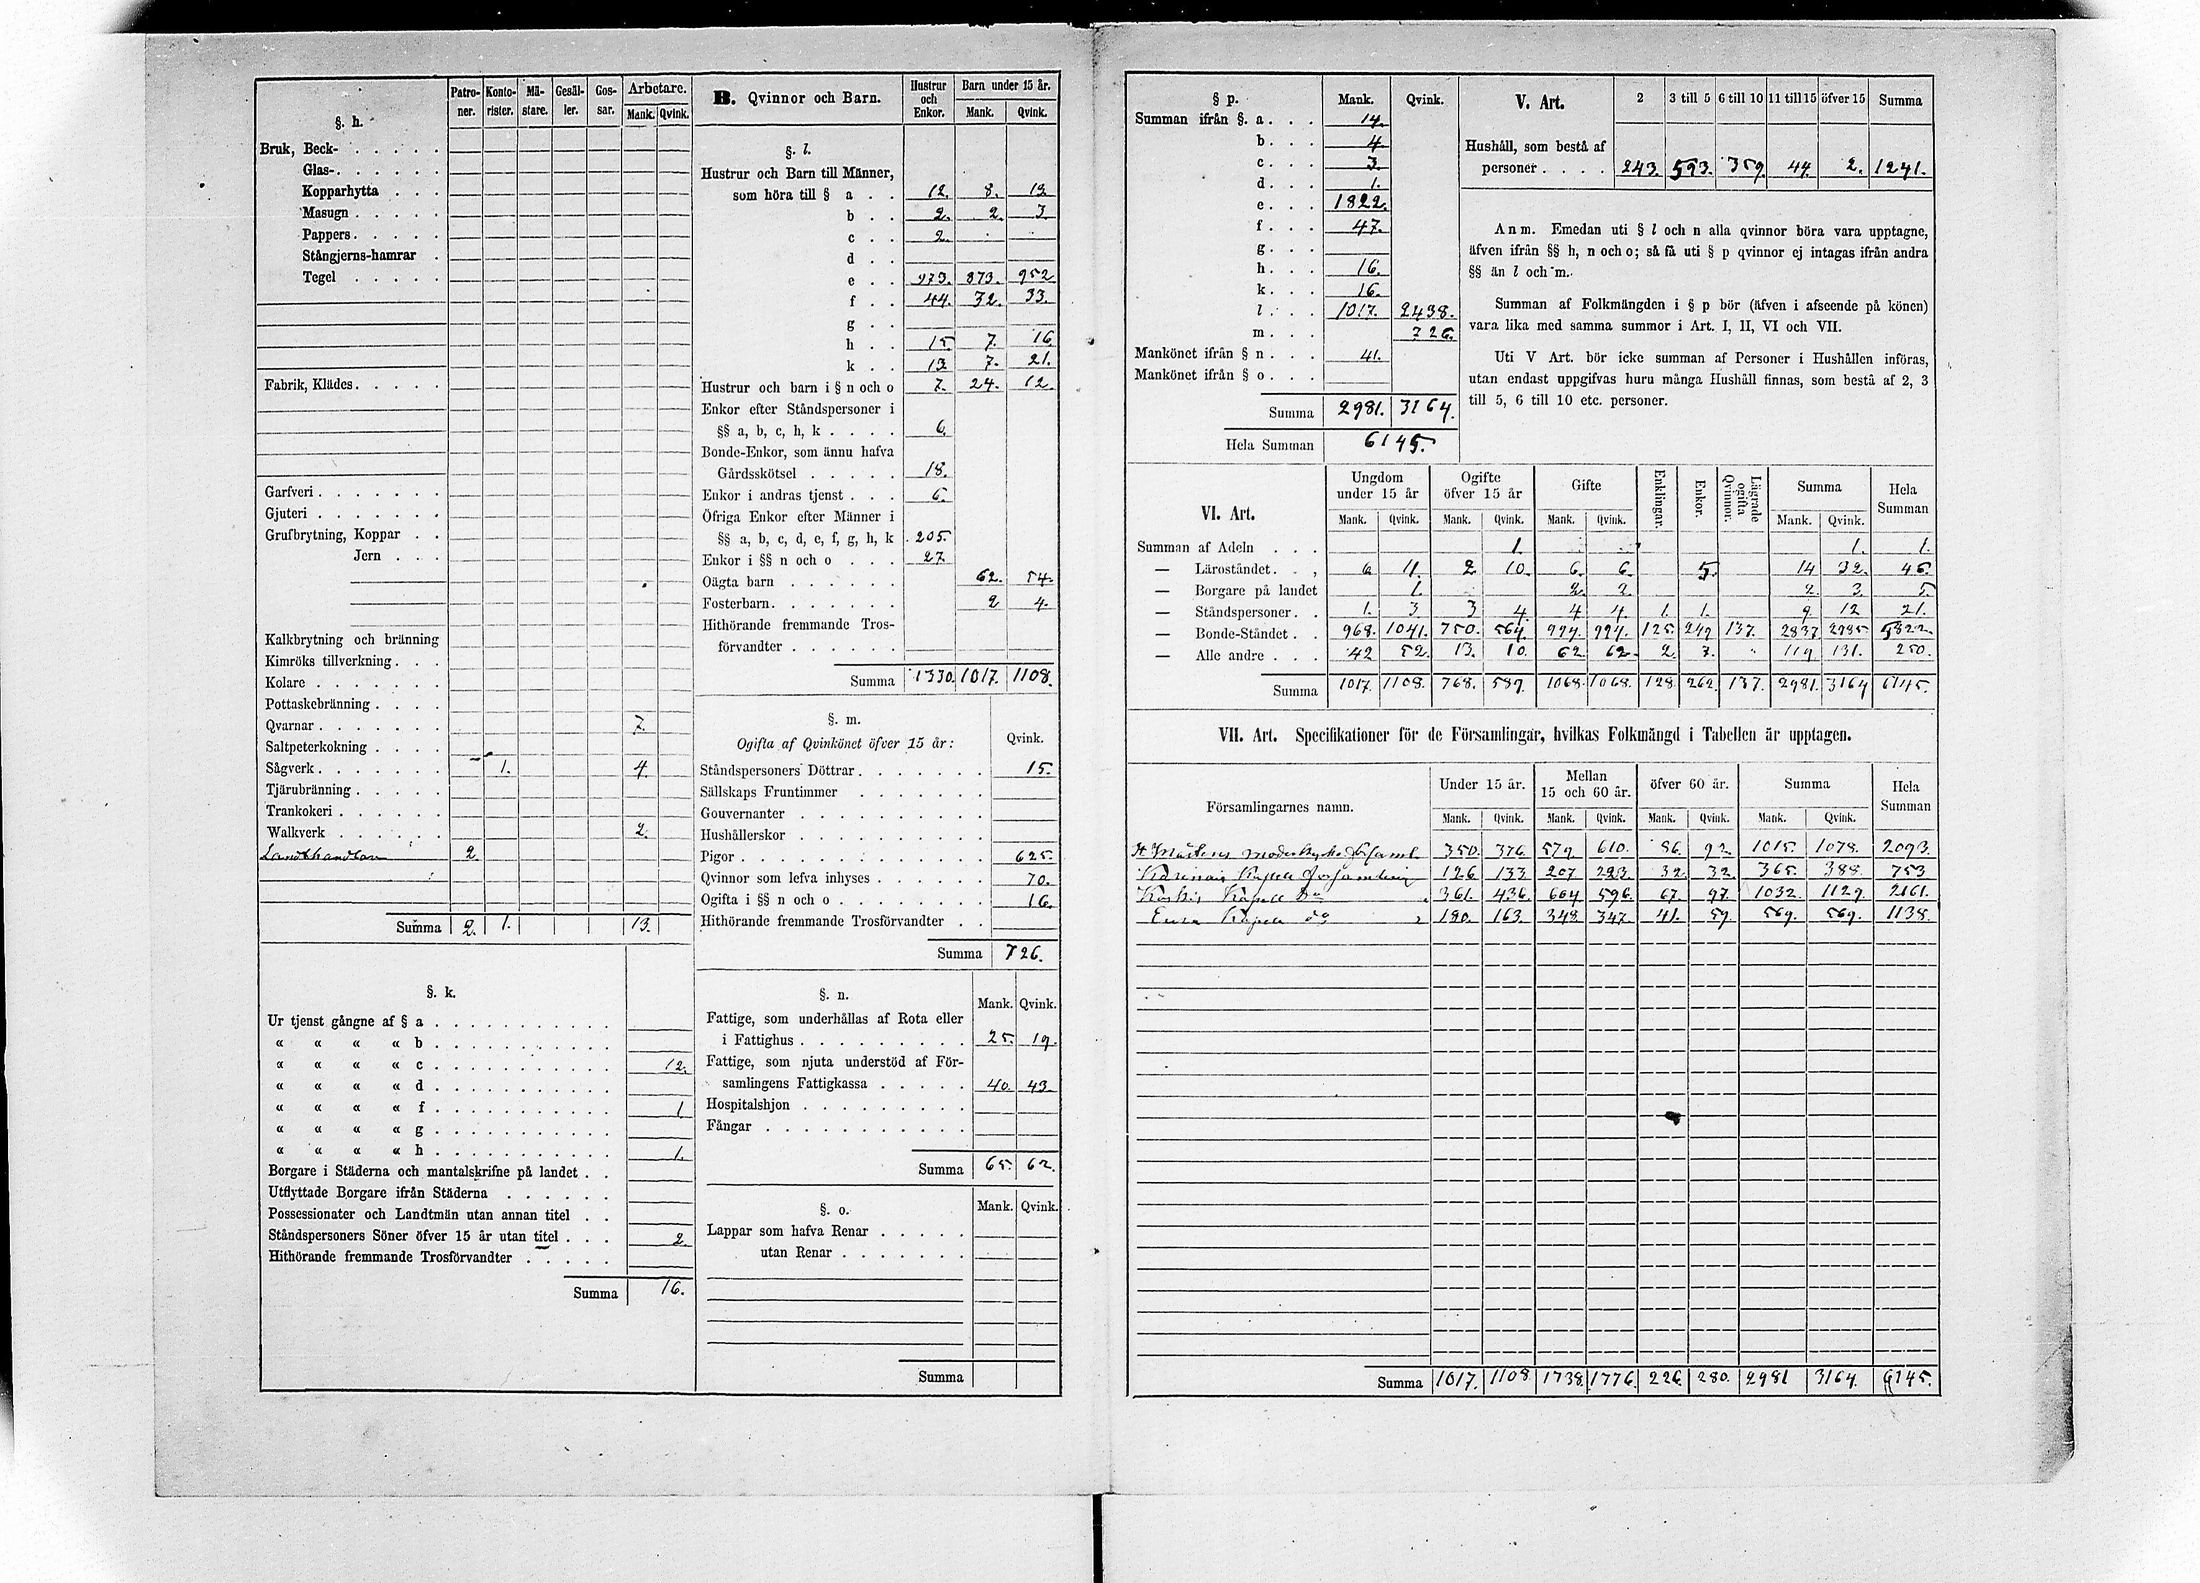 §. h.
Patro-ner. Konto-rister. Mä-stare. Gesäl-ler. Gos-sar. Arbetare. Mank. Qvink.
Bruk, Beck-
Glas-
Kopparhytta
Masugn
Pappers
Stångjerns-hamrar
Tegel
Fabrik, Klädes
Garfveri
Gjuteri
Grufbrytning, Koppar
Jern
Kalkbrytning och bränning
Kimröks tillverkning
Kolare
Pottaskebränning
Qvarnar 7.
Saltpeterkokning
Sågverk 1. 4.
Tjärubränning
Trankokeri
Walkverk 2.
Landthandlare 2.
Summa 2. 1. 13.
§. k.
Ur tjenst gångne af § a
« « « « b
« « « « c 12.
« « « « d
« « « « f 1.
« « « « g
« « « « h 1.
Borgare i Städerna och mantalskrifne på landet
Utflyttade Borgare ifrån Städerna
Possessionater och Landtmän utan annan titel
Ståndspersoners Söner öfver 15 år utan titel 2.
Hithörande fremmande Trosförvandter
Summa 16.
B. Qvinnor och Barn. Hustrur och Enkor. Barn under 15 år. Mank. Qvink.
§. l.
Hustrur och Barn till Männer,
som höra till § a 12. 8. 13.
b 2. 2. 3.
c 2.
d
e 973. 873. 952
f 44. 32. 33.
g
h 15. 7. 16
k 13. 7. 21.
Hustrur och barn i § n och o 7. 24. 12.
Enkor efter Ståndspersoner i
§§ a, b, c, h, k 6.
Bonde-Enkor, som ännu hafva
Gårdsskötsel 18.
Enkor i andras tjenst 6.
Öfriga Enkor efter Männer i
§§ a, b, c, d, e, f, g, h, k 205.
Enkor i §§ n och o 27.
Oägta barn 62. 54.
Fosterbarn 2 4.
Hithörande fremmande Tros-
förvandter
Summa 1330. 1017. 1108.
§. m.
Ogifta af Qvinkönet öfver 15 år: Qvink.
Ståndspersoners Döttrar 15.
Sällskaps Fruntimmer
Gouvernanter
Hushållerskor
Pigor 625.
Qvinnor som lefva inhyses 70.
Ogifta i §§ n och o 16.
Hithörande fremmande Trosförvandter
Summa 726.
§. n. Mank. Qvink.
Fattige, som underhållas af Rota eller
i Fattighus 25. 19.
Fattige, som njuta understöd af För-
samlingens Fattigkassa 40. 43.
Hospitalshjon
Fångar
Summa 65. 62.
§. o. Mank. Qvink.
Lappar som hafva Renar
utan Renar
Summa
§ p. Mank. Qvink.
Summan ifrån §. a. 14.
b. 4.
c. 3.
d. 1.
e. 1822.
f. 47.
g.
h. 16.
k. 16.
l. 1017. 2438.
m. 726.
Mankönet ifrån § n. 41.
Mankönet ifrån § o.
Summa 2981. 3164.
Hela Summan 6145.
V. Art. 2 3 till 5 6 till 10 11 till 15 öfver 15 Summa
Hushåll, som bestå af
personer 243. 593. 359. 44. 2. 1241.
Anm. Emedan uti § l och n alla qvinnor böra vara upptagne,
äfven ifrån §§ h, n och o; så få uti § p qvinnor ej intagas ifrån andra
§§ än l och m.
Summan af Folkmängden i § p bör (äfven i afseende på könen)
vara lika med samma summor i Art. I, II, VI och VII.
Uti V Art. bör icke summan af Personer i Hushållen införas,
utan endast uppgifvas huru många Hushåll finnas, som bestå af 2, 3
till 5, 6 till 10 etc. personer.
VI. Art. Ungdom under 15 år Ogifte öfver 15 år Gifte Enklingar. Enkor. Lägrade ogifta Qvinnor. Summa Hela Summan
Mank. Qvink. Mank. Qvink. Mank. Qvink. Mank. Qvink.
Summan af Adeln 1. 1. 1.
— Läroståndet 6 11. 2 10. 6. 6. 5. 14 32. 46.
— Borgare på landet 1. 2. 2. 2. 3. 5.
— Ståndspersoner 1. 3 3 4 4 4. 1. 1. 9. 12 21.
— Bonde-Ståndet 968. 1041. 750. 564. 994. 994. 125. 249 137. 2837 2985 5822
— Alle andre 42 52. 13. 10. 62. 62. 2. 7. 119 131. 250.
Summa 1017. 1108. 768. 589. 1068. 1068. 128. 262. 137. 2981. 3164 6145.
VII. Art. Specifikationer för de Församlingar, hvilkas Folkmängd i Tabellen är upptagen.
Församlingarnes namn. Under 15 år. Mellan 15 och 60 år. öfver 60 år. Summa Hela Summan
Mank. Qvink. Mank. Qvink. Mank. Qvink. Mank. Qvink.
St Mårtens 350. 376. 579. 610. 86. 92. 1015. 1078. 2093.
Kapell 126. 133. 207. 223. 32. 32. 365. 388. 753
Koskis Kapell Do 361. 436. 604. 596. 67. 97. 1032. 1129. 2161.
Kapell do 180. 163. 348. 347. 41. 59. 569. 569. 1138.
Summa 1017. 1108 1738. 1776. 226. 280. 2981 3164. 6145.